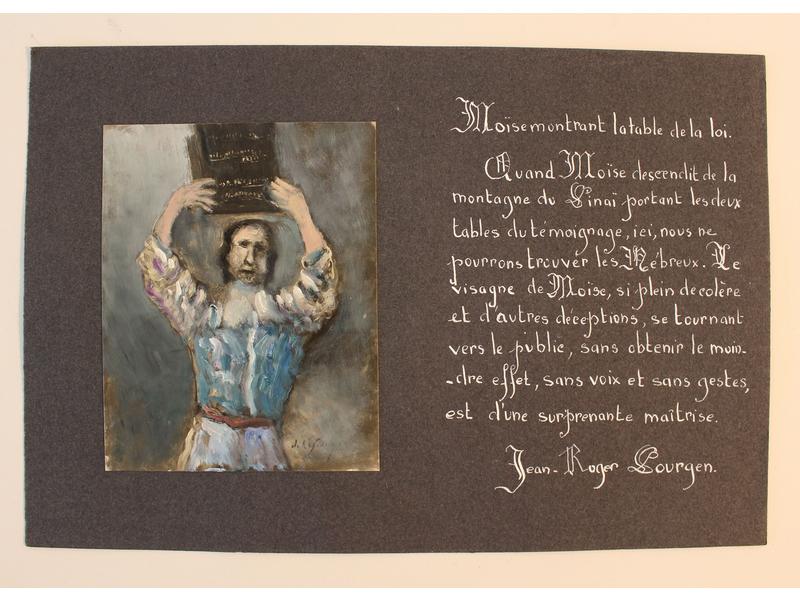 Moïse montrant la table de la loi.
Quand Moïse descendit de la
montagne du Sinaï portant les deux
tables du témoignage, ici, nous ne
pourrons trouver les Hébreux. Le
visagne de Moïse, si plein de colère
et d'autres déceptions, se tournant
vers le public, sans obtenir le moin-
-dre effet, sans voix et sans gestes,
est d'une surprenante maîtrise.
Jean-Roger Sourgen.